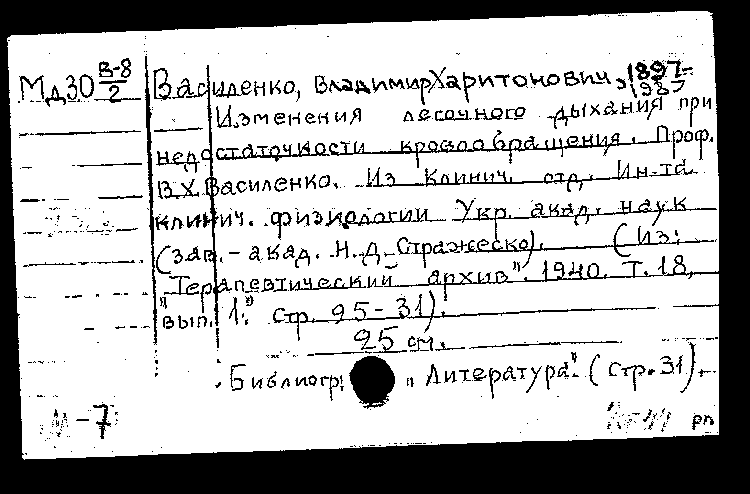 Мд30 В-8/2
Василенко, Владимир Харитонович, 1897-1987
Изменения легочного дыхания при
недостаточности кровообращения. Проф.
В.Х. Василенко. Из клинич. отд. Ин-та
клинич. физиологии Укр. акад. наук
(зав. - акад. Н. Д. Стражеско). (Из:
"Терапевтический архив". 1940. Т. 18,
вып. 1." стр. 25-31).
25 см.
Библиогр: "Литература". (стр. 31).
М-7
рп